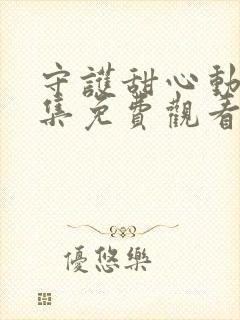 守護甜心動
集免費觀看
優悠樂